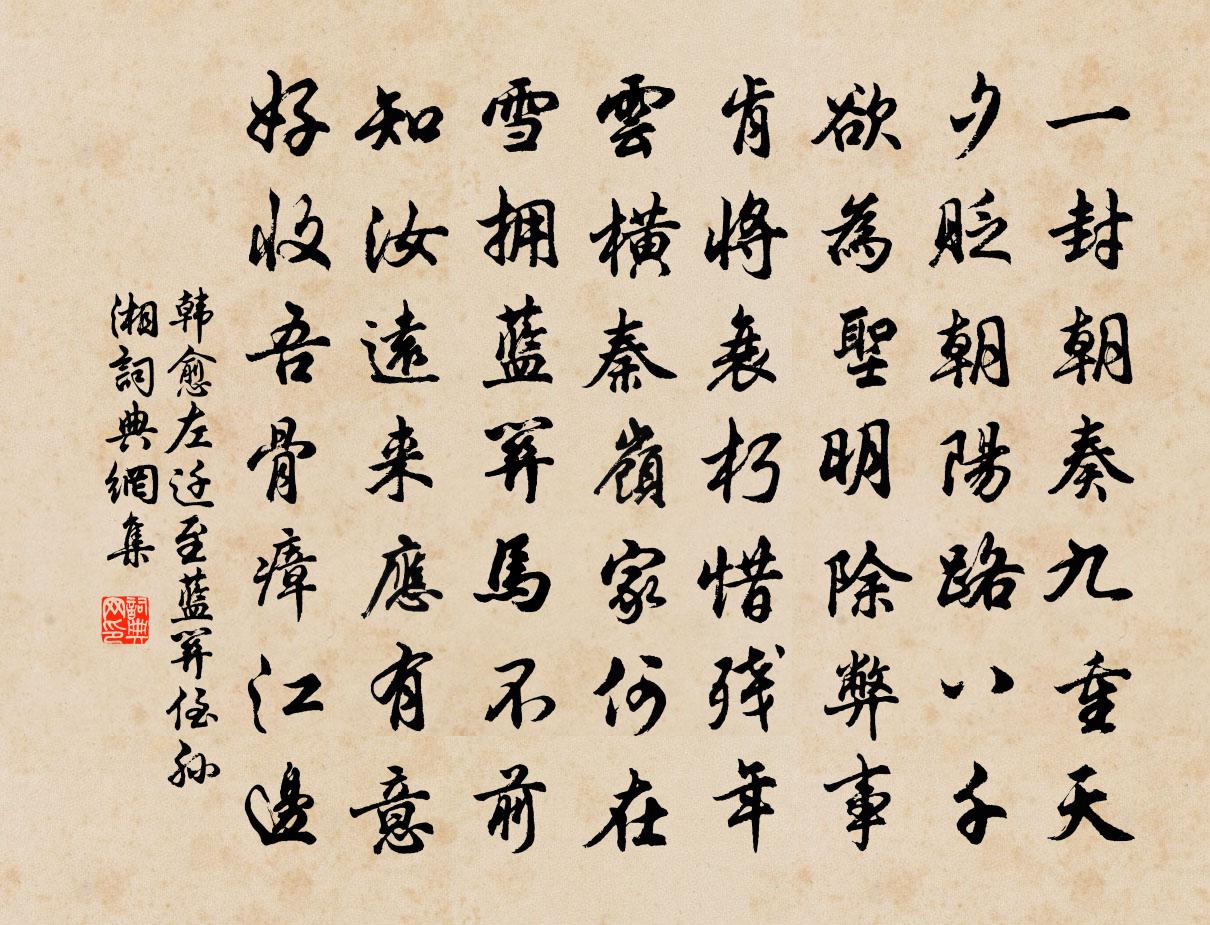 一封朝奏九重天
夕貶朝陽路八千
欲為聖明除弊事
肯將衰朽惜残年
雲橫秦嶺家何在
雪拥藍關馬不前
知汝遠来應有意
好收吾骨瘴江邊
韩愈左迁至藍關侄孙
湘詞典網集
詞典网印